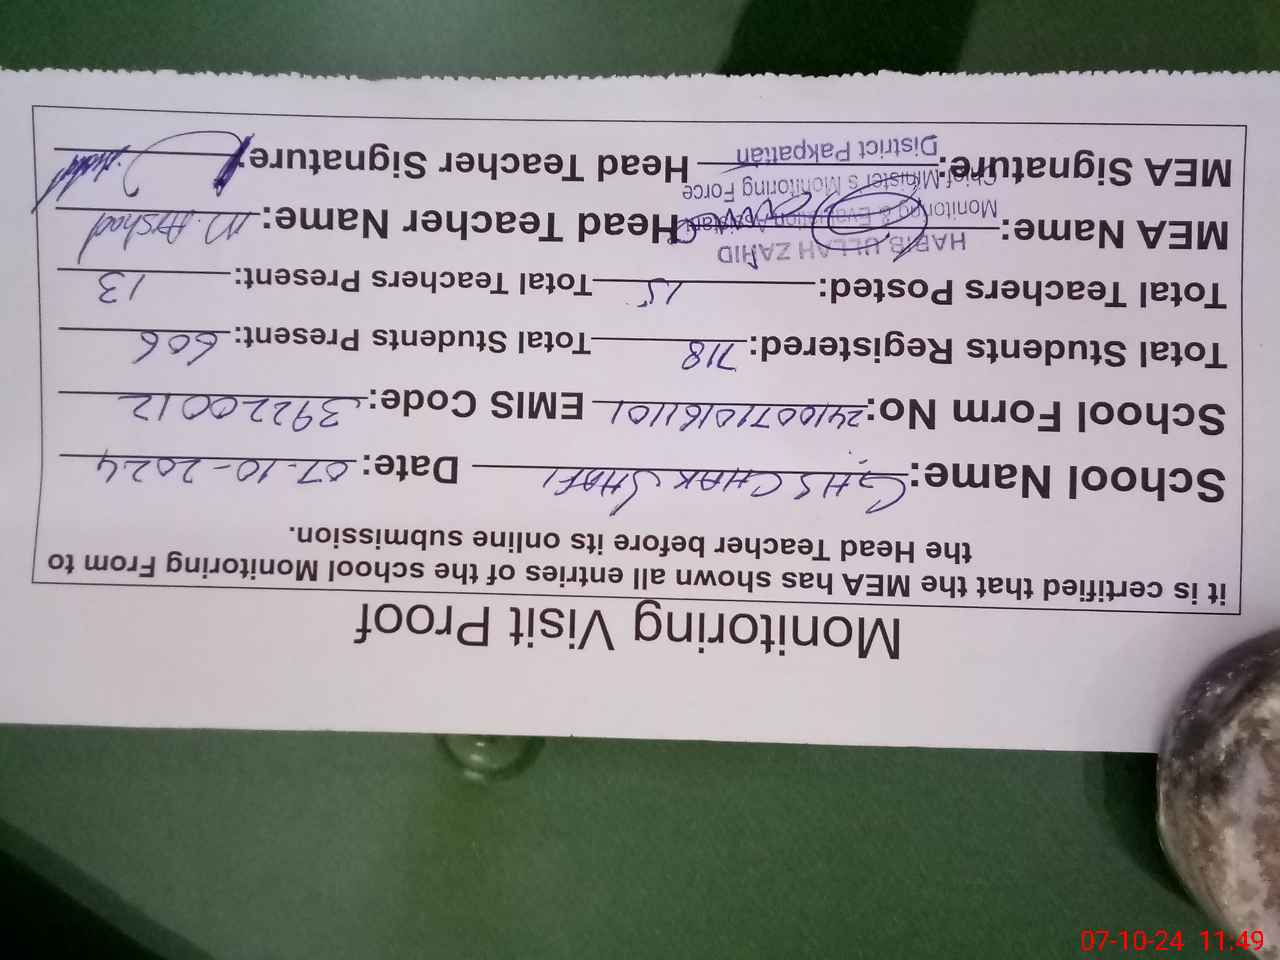 Monitoring Visit Proof
it is certified that the MEA has shown all entries of the school Monitoring From to
the Head Teacher before its online submission.
School Name: GHS CHAK SHAFI Date: 07-10-2024
School Form No: EMIS Code: 39220012
Total Students Registered: 718 Total Students Present: 606
Total Teachers Posted: 15 Total Teachers Present: 13
HABIB ULLAH ZAHID
MEA Name: Head Teacher Name: M. Arshad
Monitoring & Evaluation Assistant
Chief Minister's Monitoring Force
MEA Signature: Head Teacher Signature:
District Pakpattan
07-10-24 11:49